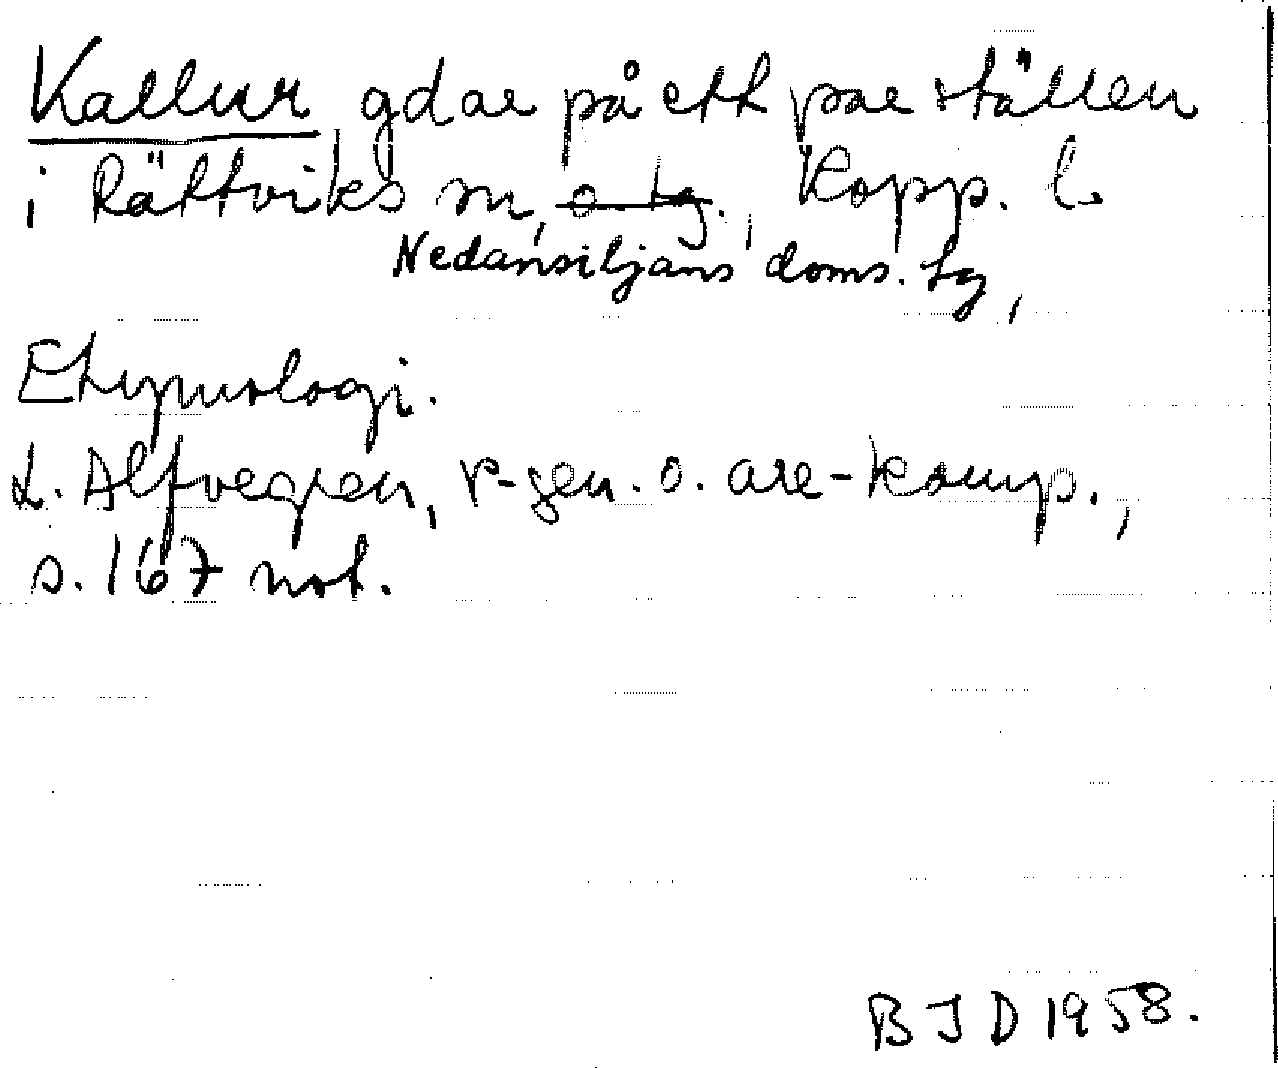 Kallur gdar på ett par ställen
i Rättviks sn, o. tg., Kopp. l.
Nedansiljans doms. tg,
Etymologi.
L. Alfvegren, r-gen. o. are-komp.,
s. 167 not.
B J D 1958.